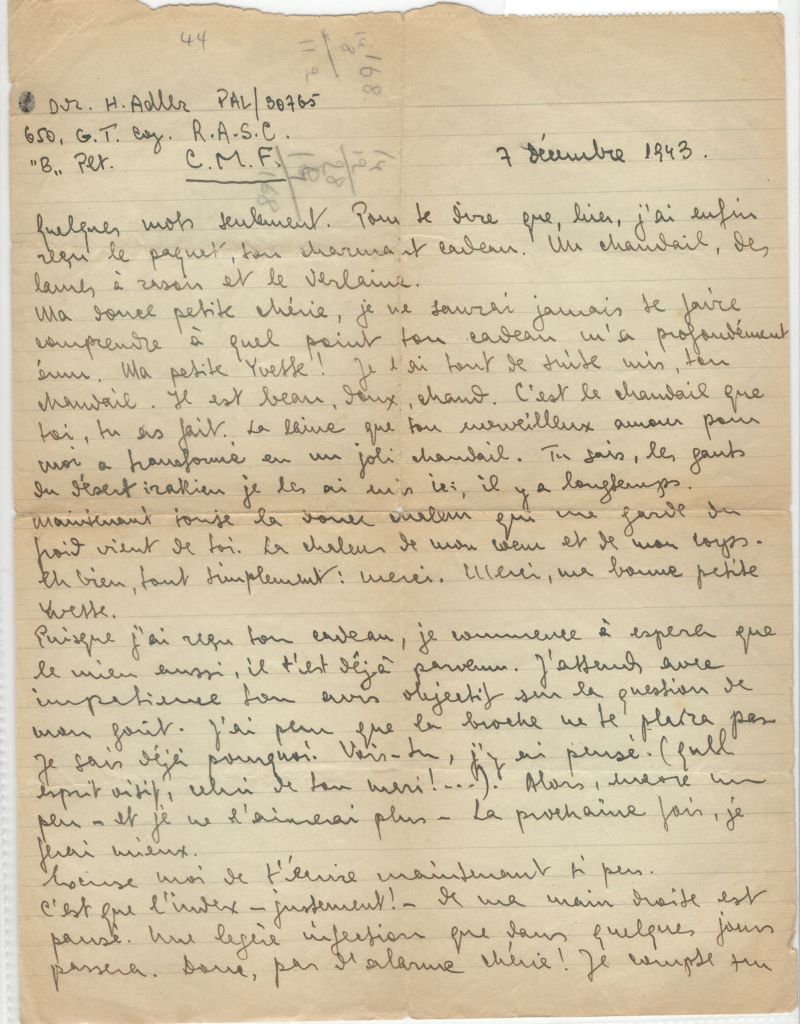 44
Dvr. H. Adler PAL/30765
650, G.T. Coy. R.A.S.C.
"B" Plt. C.M.F.
7 Décembre 1943.
Quelques mots seulement. Pour te dire que, hier, j'ai enfin
reçu le paquet, ton charmant cadeau. Un chandail, des
lames à rasoir et le Verlaine.
Ma douce petite chérie, je ne saurai jamais te faire
comprendre à quel point ton cadeau m'a profondément
ému. Ma petite Yvette! Je l'ai tout de suite mis, ton
chandail. Il est beau, doux, chaud. C'est le chandail que
toi, tu as fait. La laine que ton merveilleux amour pour
moi a transformé en un joli chandail. Tu sais, les gants
du désert irakien je les ai mis ici, il y a longtemps.
Maintenant toute la douce chaleur qui me garde du
froid vient de toi. La chaleur de mon coeur et de mon corps.
Eh bien, tout simplement: merci. Merci, ma bonne petite
Yvette.
Puisque j'ai reçu ton cadeau, je commence à esperer que
le mien aussi, il t'est déjà parvenu. J'attends avec
impatience ton avis objectif sur la question de
mon goût. J'ai peur que la broche ne te plaira pas
Je sais déjà pourquoi. Vois-tu, j'y ai pensé. (Quel
esprit visif, celui de ton mari!...). Alors, encore un
peu - et je ne l'aimerai plus - La prochaine fois, je
ferai mieux.
Excuse moi de t'écrire maintenant si peu.
C'est que l'index - justement! - de ma main droite est
pansé. Une legère infection que dans quelques jours
passera. Donc, pas d'alarme chérie! Je compte